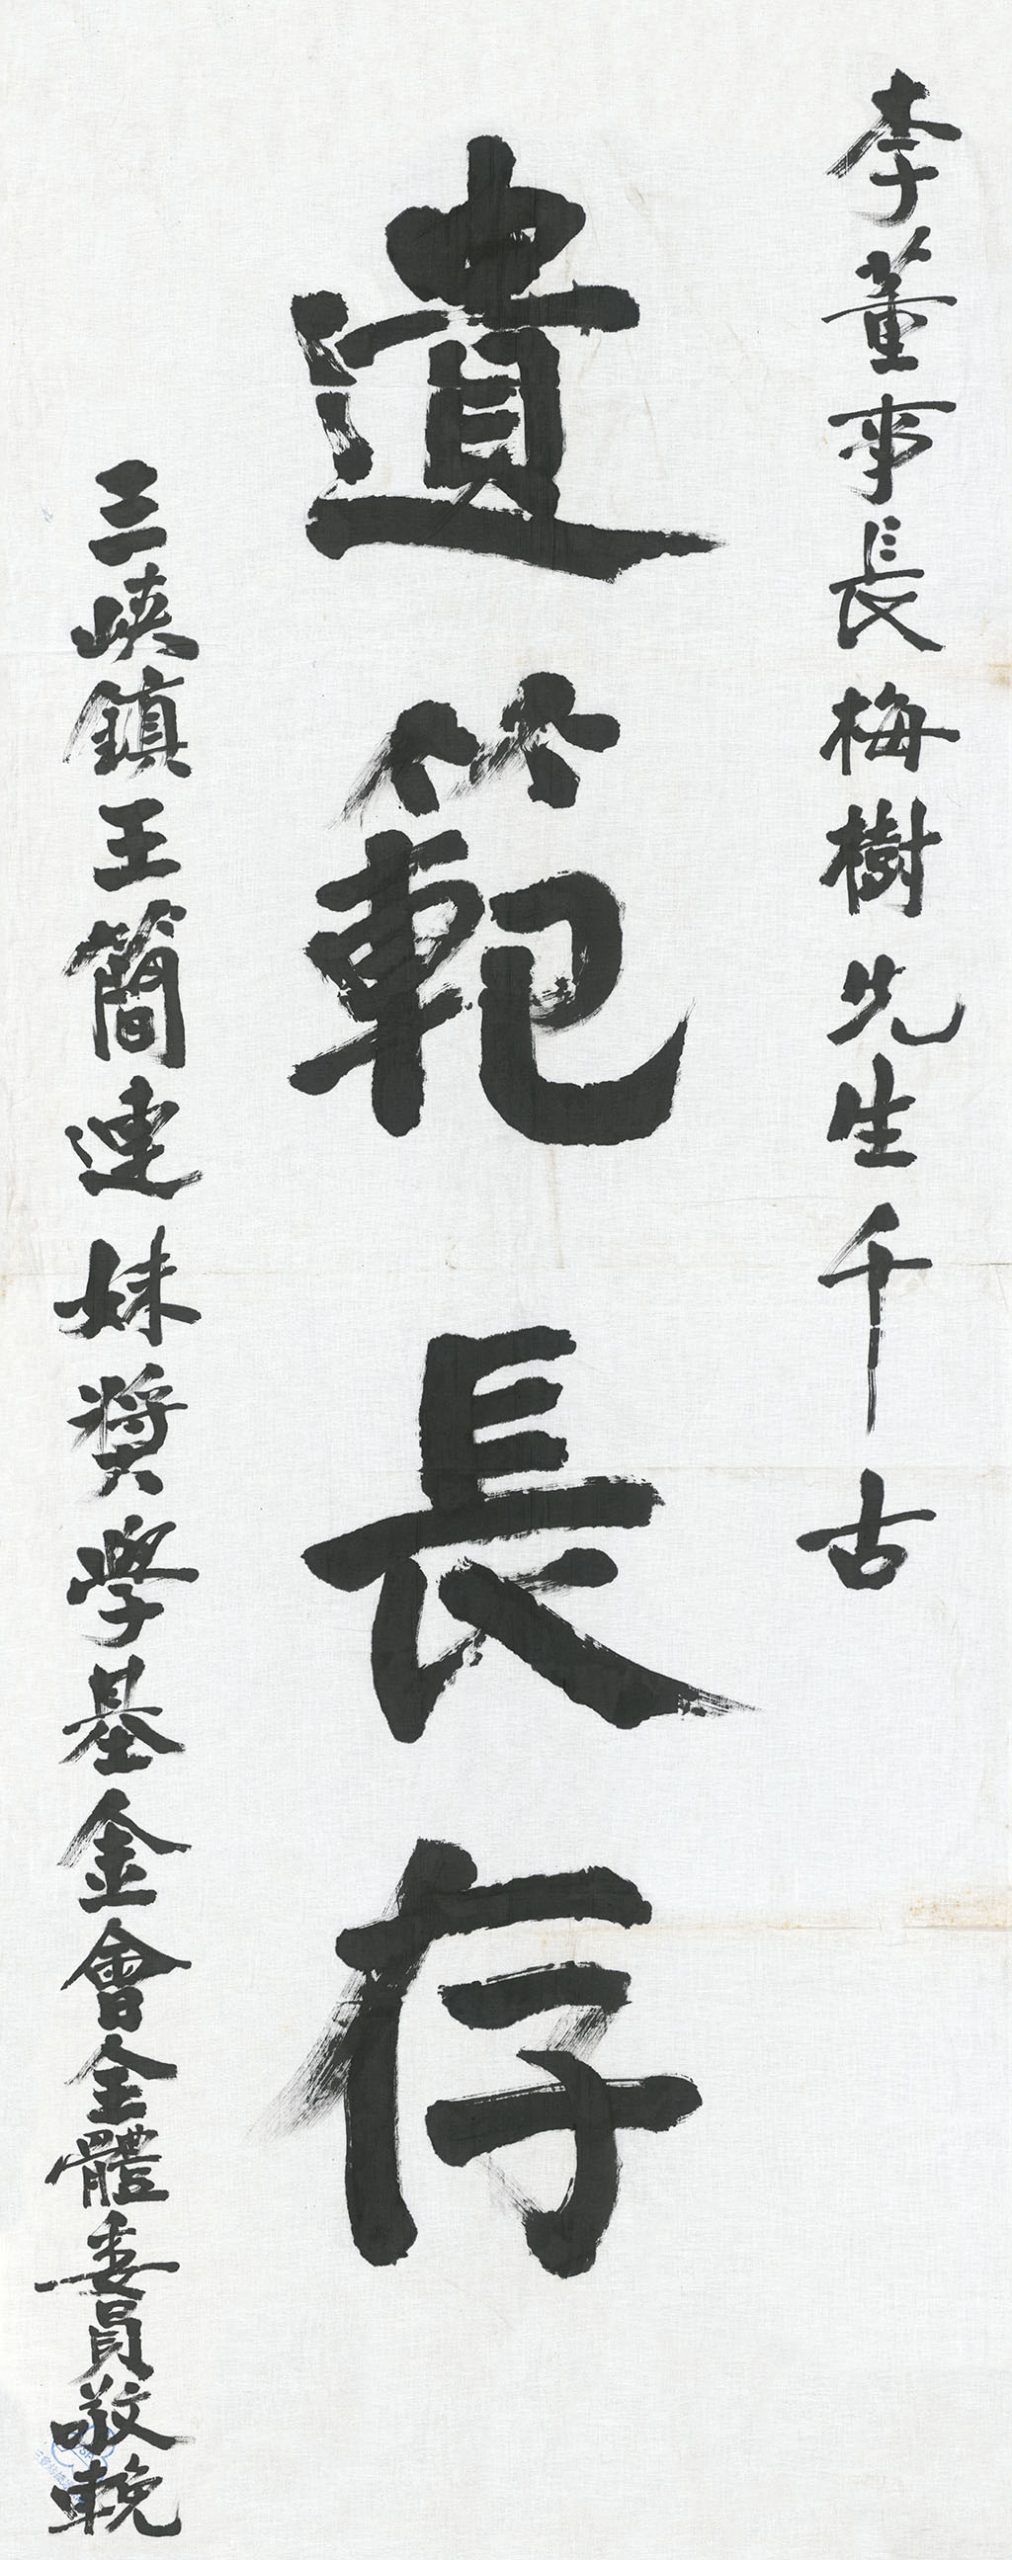 李董事長梅樹先生千古
遺範長存
三峽鎮王簡連妹奬學基金會全體委員敬輓